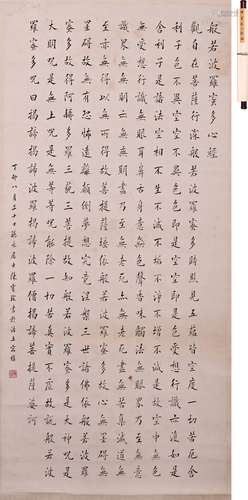 般若波羅蜜多心經
觀自在菩薩行深般若波羅蜜多時照見五蘊皆空度一切苦厄舍
利子色不異空空不異色色即是空空即是色受想行識亦復如是
舍利子是諸法空相不生不滅不垢不淨不增不減是故空中無色
無受想行識無眼耳鼻舌身意無色聲香味觸法無眼界乃至無意
識界無無明亦無無明盡乃
至無老死亦無老死盡無苦集滅道
無智亦無得以無所得故菩提薩埵依般若波羅蜜多故心無
罣礙故無有恐怖遠離顛倒夢想究竟涅槃三世諸佛依般若波羅
蜜多故得阿耨多羅三藐三菩提故知般若波羅蜜多是大神咒是
大明咒是無上咒是無等等咒能除一切苦真實不虛故說般若波
羅蜜多咒即說咒曰揭諦揭諦波羅揭諦波羅僧揭諦菩提薩婆訶
丁卯八月三十日